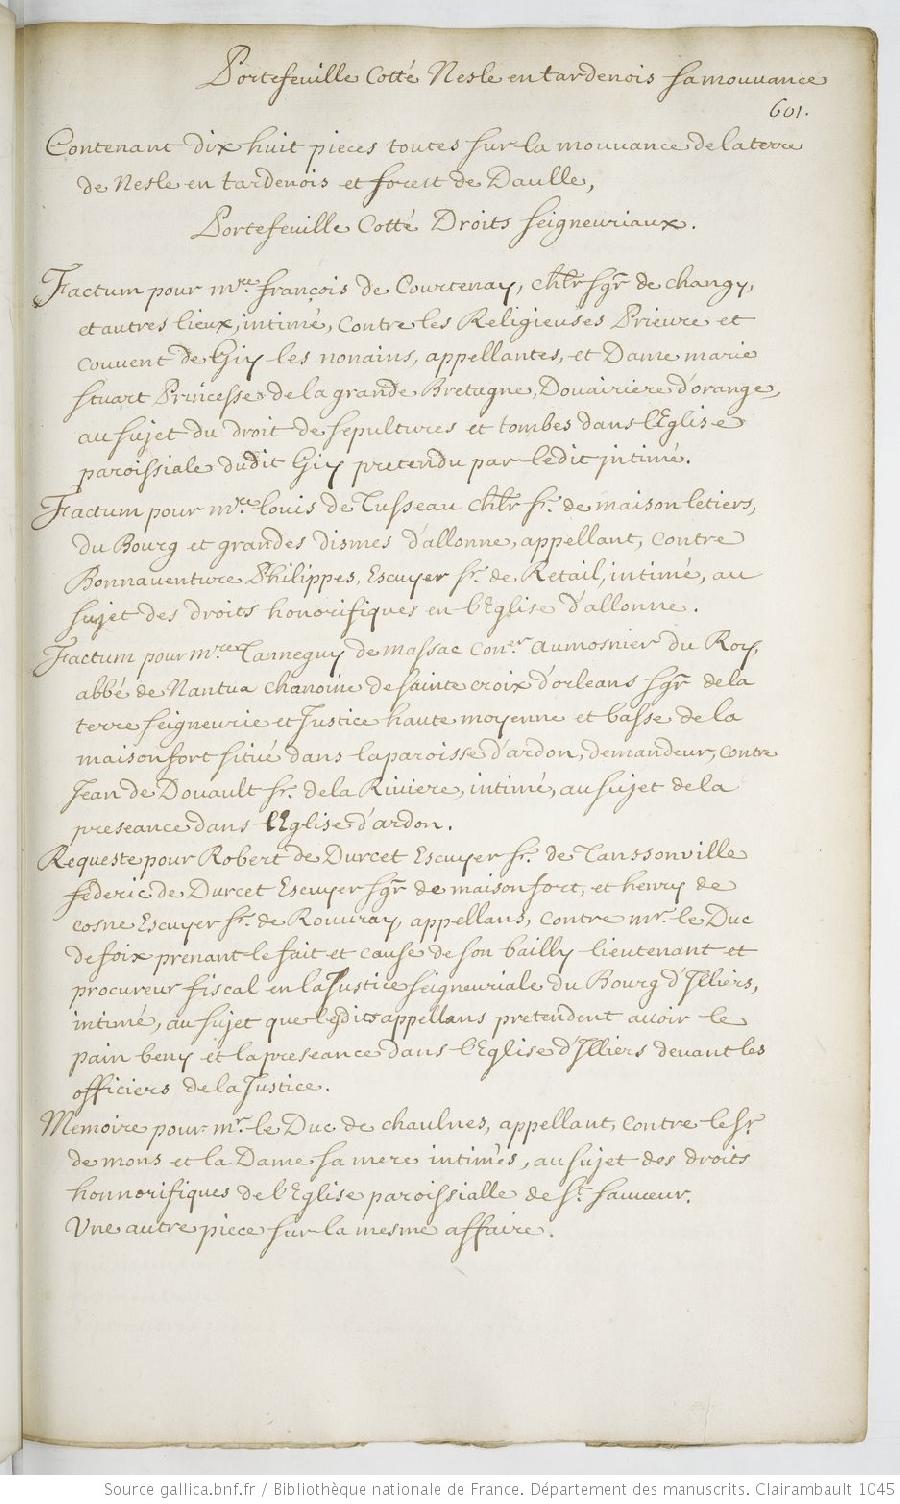 Portefeuille Cotté Nesle en tardenois sa mouvance
601.
Contenant dix huit pieces toutes sur la mouvance de la terre
de Nesle en tardenois et forest de Daulle,
Portefeuille Cotté Droits seigneuriaux.
Factum pour mre. françois de Courtenay, chlr sgr de changy,
et autres lieux, intimé, contre les Religieuses Prieure et
couvent de Giy les nonains, appellantes, et Dame marie
stuart Princesse de la grande Bretagne, Douairiere d'orange,
au sujet du droit de sepultures et tombes dans l'Eglise
paroissiale dudit Giy pretendu par ledit intimé.
Factum pour mre. louis de Tusseau chlr sr. de maisonletiers,
du Bourg et grandes dismes d'allonne, appellant, contre
Bonnaventure Philippes, Escuyer sr. de Retail, intimé, au
sujet des droits honorifiques en l'Eglise d'allonne.
Factum pour mre Tanneguy de massac coner. aumosnier du Roy,
abbé de Nantua chanoine de sainte croix d'orleans sgr de la
terre seigneurie et Justice haute moyenne et basse de la
maisonfort situé dans la paroisse d'ardon, demandeur, contre
Jean de Douault sr. de la Riviere, intimé, au sujet de la
preseance dans l'Eglise d'ardon.
Requeste pour Robert de Durcet Escuyer sr. de Tanssonville
federic de Durcet Escuyer sgr de maisonfort, et henry de
cosne Escuyer sr. de Rouvray, appellans, contre mr. le Duc
de foix prenant le fait et cause de son bailly lieutenant et
procureur fiscal en la Justice seigneuriale du Bourg d'Jlliers,
intimé, au sujet que lesdits appellans pretendent avoir le
pain beny et la preseance dans l'Eglise d'Jlliers devant les
officiers de la Justice.
Memoire pour mr. le Duc de chaulnes, appellant, contre le sr.
de mons et la Dame sa mere intimés, au sujet des droits
honnorifiques de l'Eglise paroissialle de st. sauueur.
Une autre piece sur la mesme affaire.
Source gallica.bnf.fr / Bibliothèque nationale de France. Département des manuscrits. Clairambault 1045